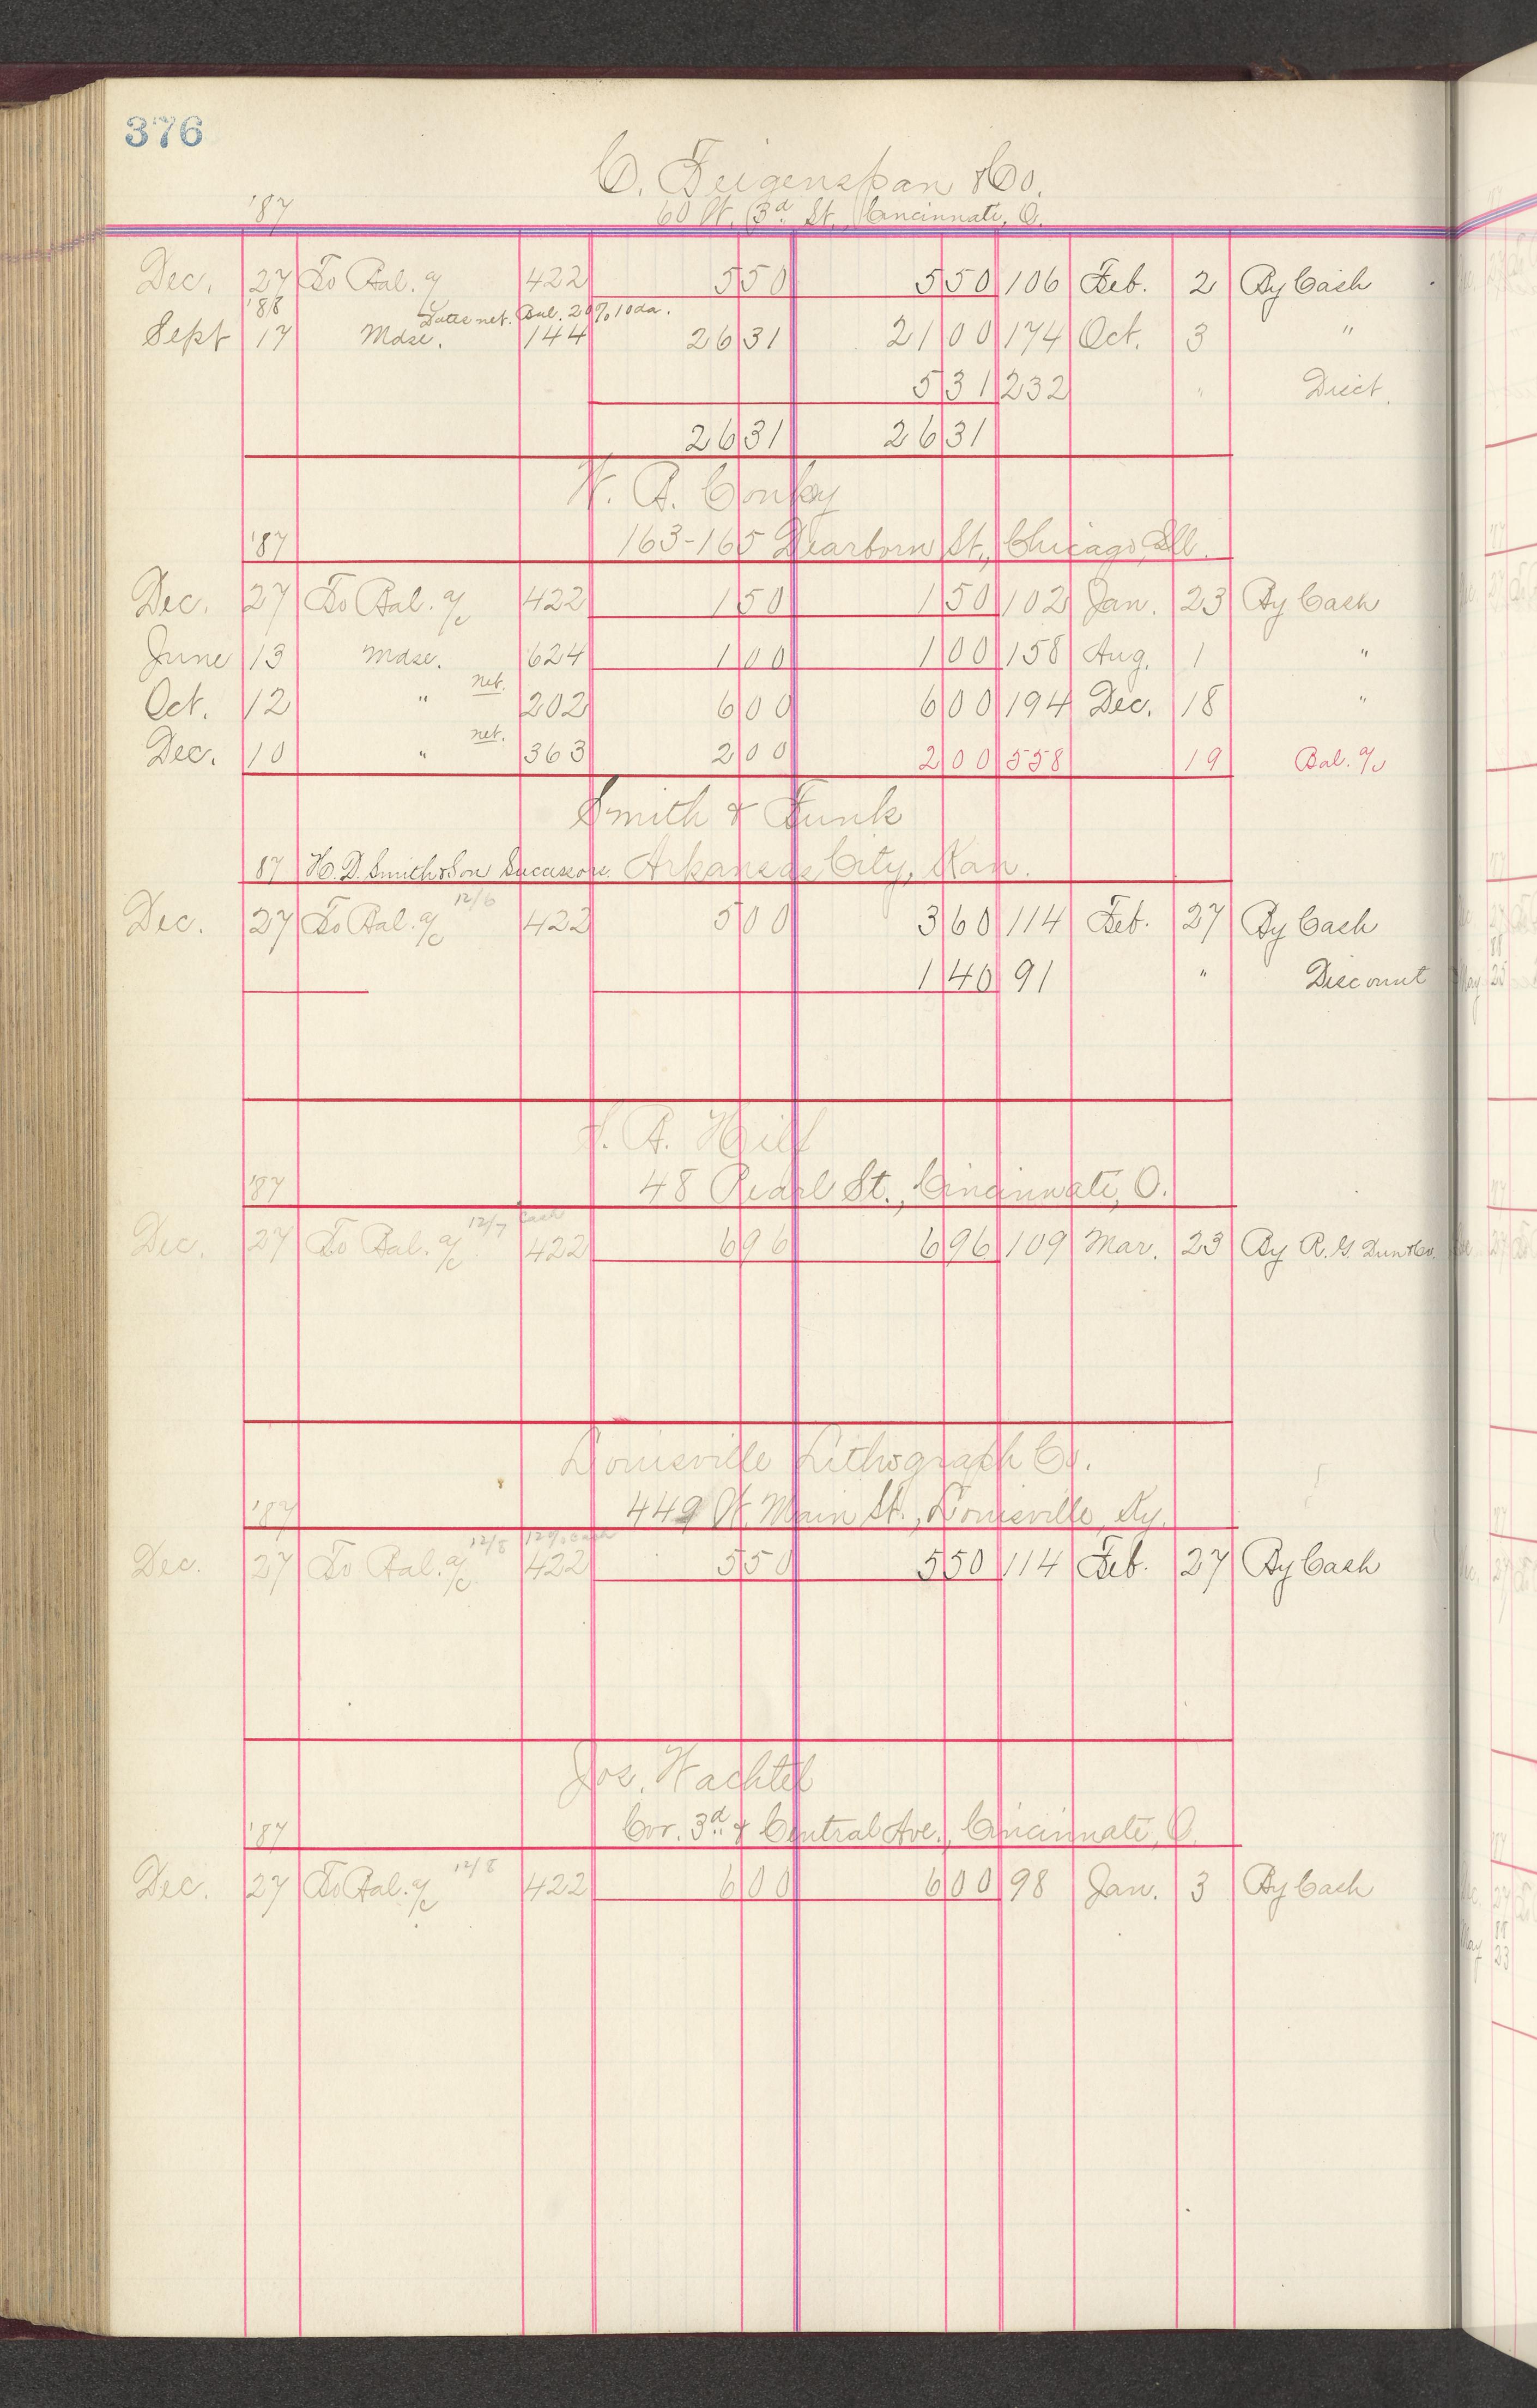 376
C. Feigenspan & Co.
'87 60 W. 3d St., Cincinnati, O.
Dec. 27 To Bal. a/c 422 5 50 5 50 106 Feb. 2 By Cash
'88 net. Bal. 20% 10 da.
Sept 17 Mdse. 144 26 31 21 00 174 Oct. 3 "
5 31 232 " Disct.
26 31 26 31
W. B. Conkey
'87 163-165 Dearborn St., Chicago, Ill.
Dec. 27 To Bal. a/c 422 1 50 1 50 102 Jan. 23 By Cash
June 13 Mdse. 624 1 00 1 00 158 Aug. 1 "
Oct. 12 " net. 202 6 00 6 00 194 Dec. 18 "
Dec. 10 " net. 363 2 00 2 00 558 19 Bal. a/c
Smith & Funk
87 H. D. Smith & Son Sucessors Arkansas City, Kan.
Dec. 27 To Bal. a/c 12/6 422 5 00 3 60 114 Feb. 27 By Cash
1 40 91 " Discount
A. Hill
'87 48 Pearl St., Cincinnati, O.
Dec. 27 To Bal. a/c 12/7 Cash 422 6 96 6 96 109 Mar. 23 By R. G. Dun & Co.
Louisville Lithograph Co.
'87 449 W. Main St., Louisville, Ky.
Dec. 27 To Bal. a/c 12/8 12% Cash 422 5 50 5 50 114 Feb. 27 By Cash
Jos. Wachtel
'87 Cor. 3d & Central Ave., Cincinnati, O.
Dec. 27 To Bal. a/c 12/8 422 6 00 6 00 98 Jan. 3 By Cash